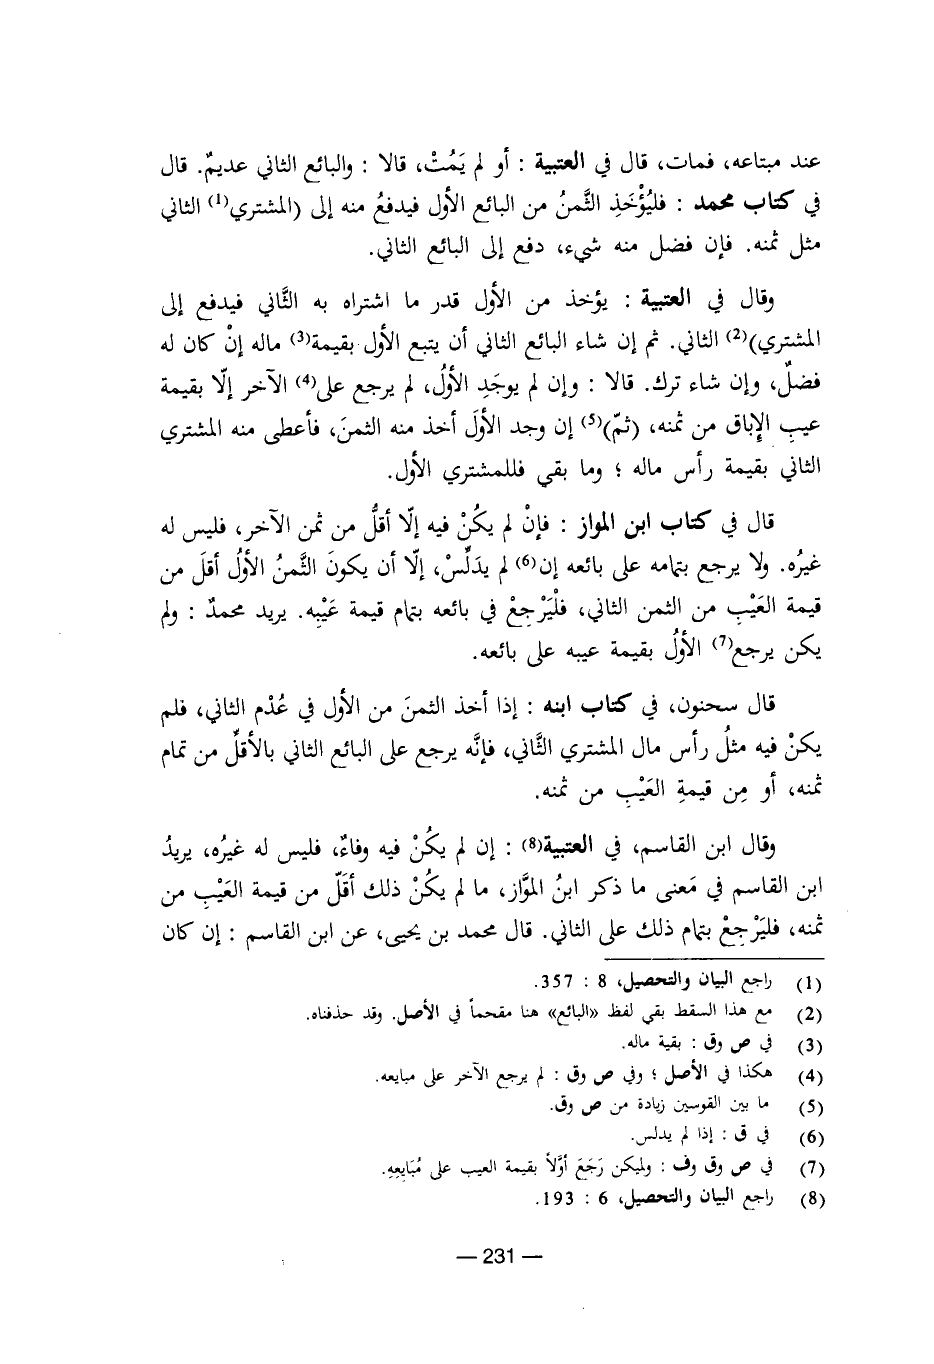 عند مبتاعه، فمات، قال في العتبية : أو لم يَمُتْ، قالا : والبائع الثاني عديمٌ. قال
في كتاب محمد : فليُؤْخَذِ الثَّمنُ من البائع الأول فيدفعُ منه إلى (المشتري(1) الثاني
مثل ثمنه. فإن فضل منه شيء، دفع إلى البائع الثاني.
وقال في العتبية : يؤخذ من الأول قدر ما اشتراه به الثَّاني فيدفع إلى
المشتري)(2) الثاني. ثم إن شاء البائع الثاني أن يتبع الأول بقيمة(3) ماله إنْ كان له
فضلٌ، وإن شاء ترك. قالا : وإن لم يوجَدِ الأولُ، لم يرجع على(4) الآخر إلّا بقيمة
عيبِ الإباق من ثمنه، (ثمّ)(5) إن وجد الأولَ أخذ منه الثمنَ، فأعطى منه المشتري
الثاني بقيمة رأس ماله ؛ وما بقي فللمشتري الأول.
قال في كتاب ابن المواز : فإنْ لم يكُنْ فيه إلّا أقلُّ من ثمن الآخر، فليس له
غيرُه. ولا يرجع بتمامه على بائعه إن(6) لم يدَلِّسْ، إلّا أن يكونَ الثَّمنُ الأولُ أقلَ من
قيمة العَيْبِ من الثمن الثاني، فلْيَرْجِعْ في بائعه بتمام قيمة عَيْبِه. يريد محمدٌ : ولم
يكن يرجع(7) الأولُ بقيمة عيبه على بائعه.
قال سحنون، في كتاب ابنه : إذا أخذ الثمنَ من الأول في عُدْم الثاني، فلم
يكنْ فيه مثلُ رأس مال المشتري الثَّاني، فإنَّه يرجع على البائع الثاني بالأقلِّ من تمام
ثمنه، أو مِن قيمةِ العَيْبِ من ثمنه.
وقال ابن القاسم، في العتبية(8) : إن لم يكُنْ فيه وفاءٌ، فليس له غيرُه، يريدُ
ابن القاسم في مَعنى ما ذكر ابنُ الموَّاز، ما لم يكُنْ ذلك أقَلّ من قيمة العَيْبِ من
ثمنه، فليَرْجِعْ بتمام ذلك على الثاني. قال محمد بن يحيى، عن ابن القاسم : إن كان
(1) راجع البيان والتحصيل، 8 : 357.
(2) مع هذا السقط بقي لفظ «البائع» هنا مقحماً في الأصل. وقد حذفناه.
(3) في ص وق : بقية ماله.
(4) هكذا في الأصل ؛ وفي ص وق : لم يرجع الآخر على مبايعه.
(5) ما بين القوسين زيادة من ص وق.
(6) في ق : إذا لم يدلس.
(7) في ص وق وف : ولميكن رَجَعَ أوَّلاً بقيمة العيب على مُبَايِعِهِ.
(8) راجع البيان والتحصيل، 6 : 193.
— 231 —